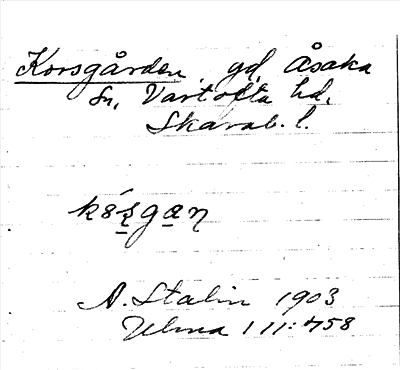 Korsgården, gd, Åsaka
sn, Vartofta hd,
Skarab. l.
A. Stalin 1903
Ulma 111:458